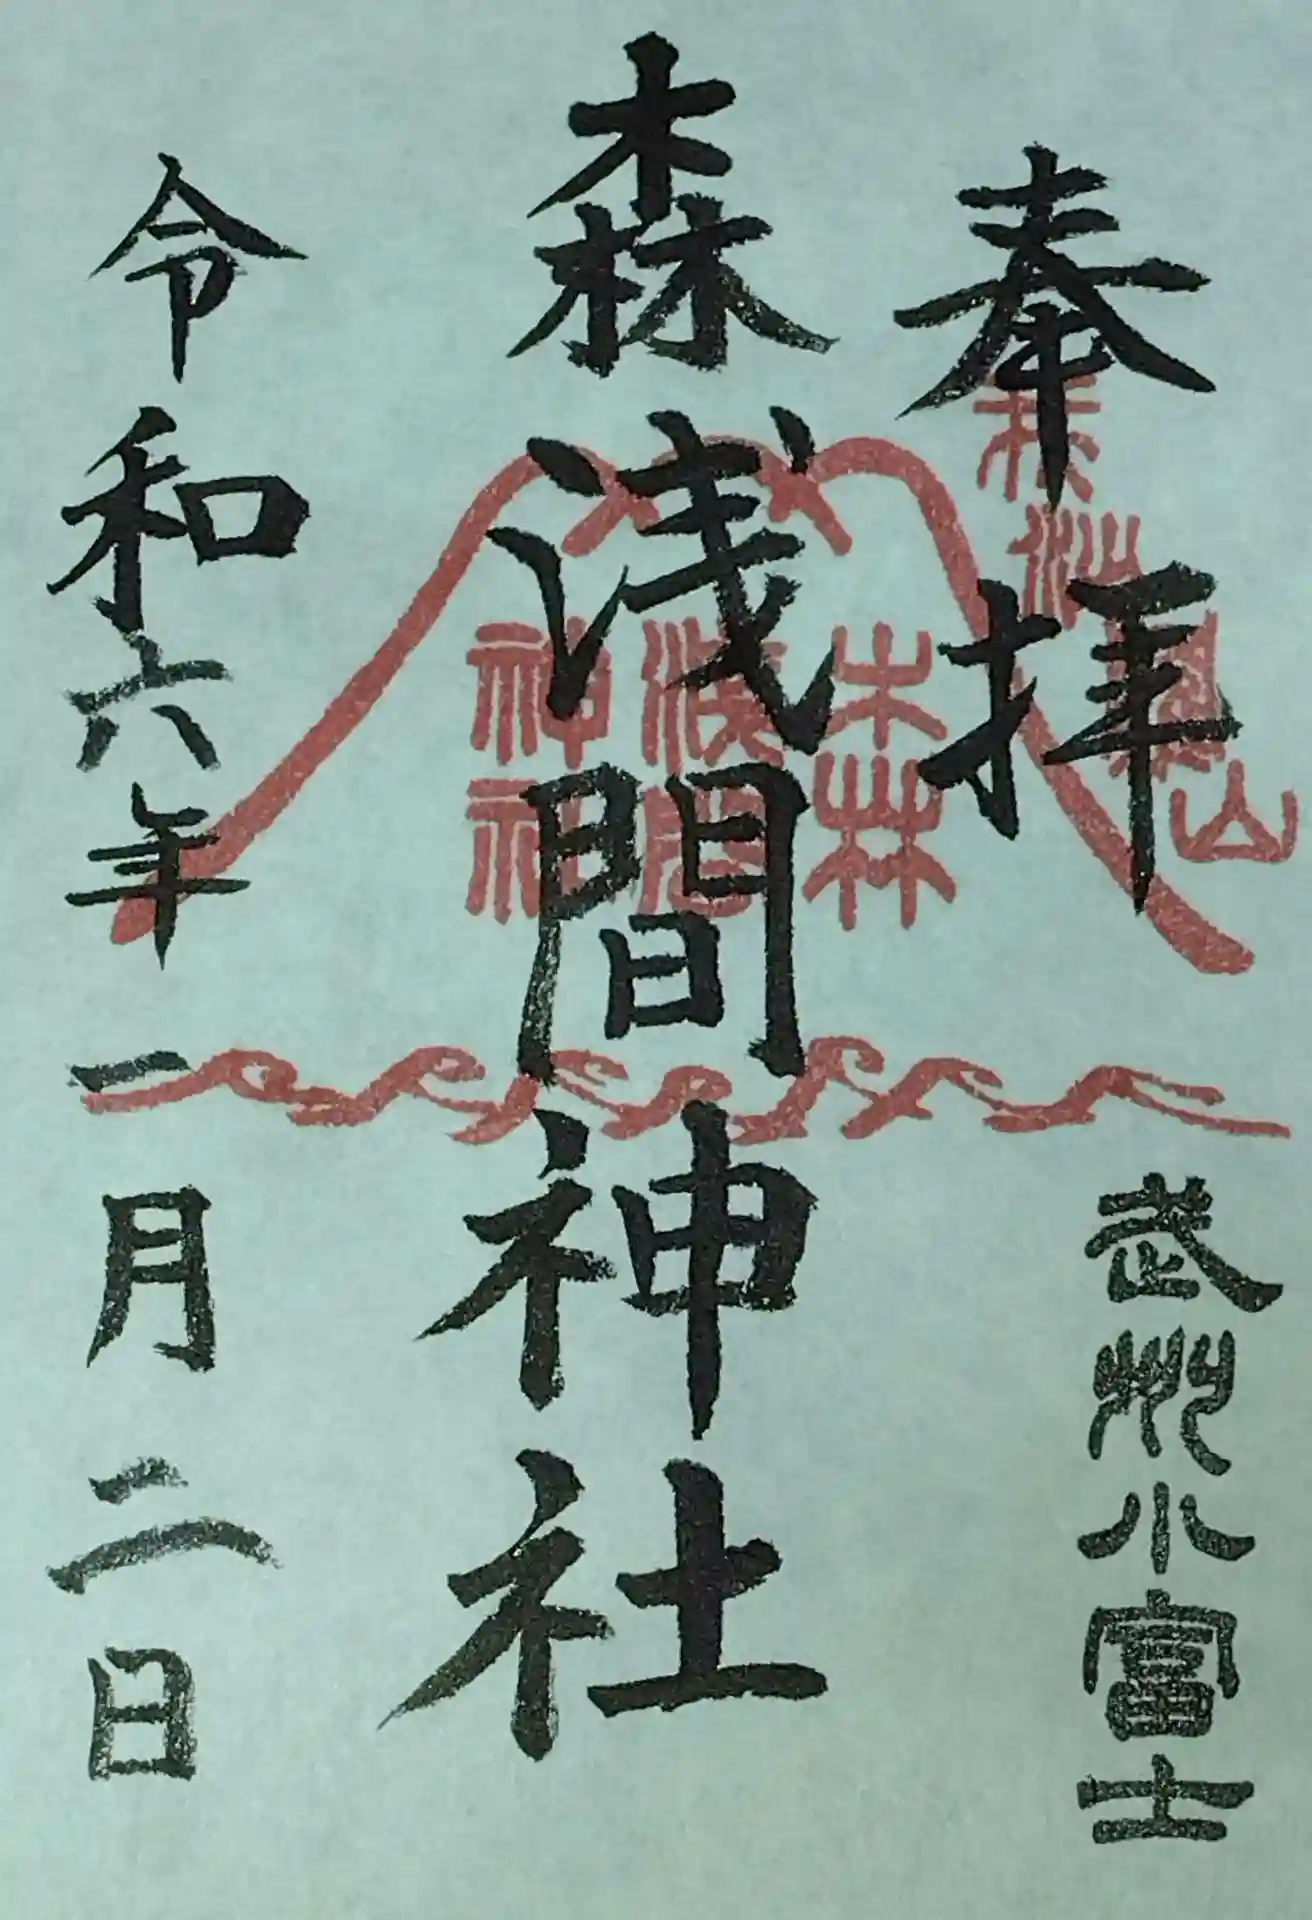 奉拝
武州小富士
森浅間神社
森
浅間
神社
令和六年一月二日